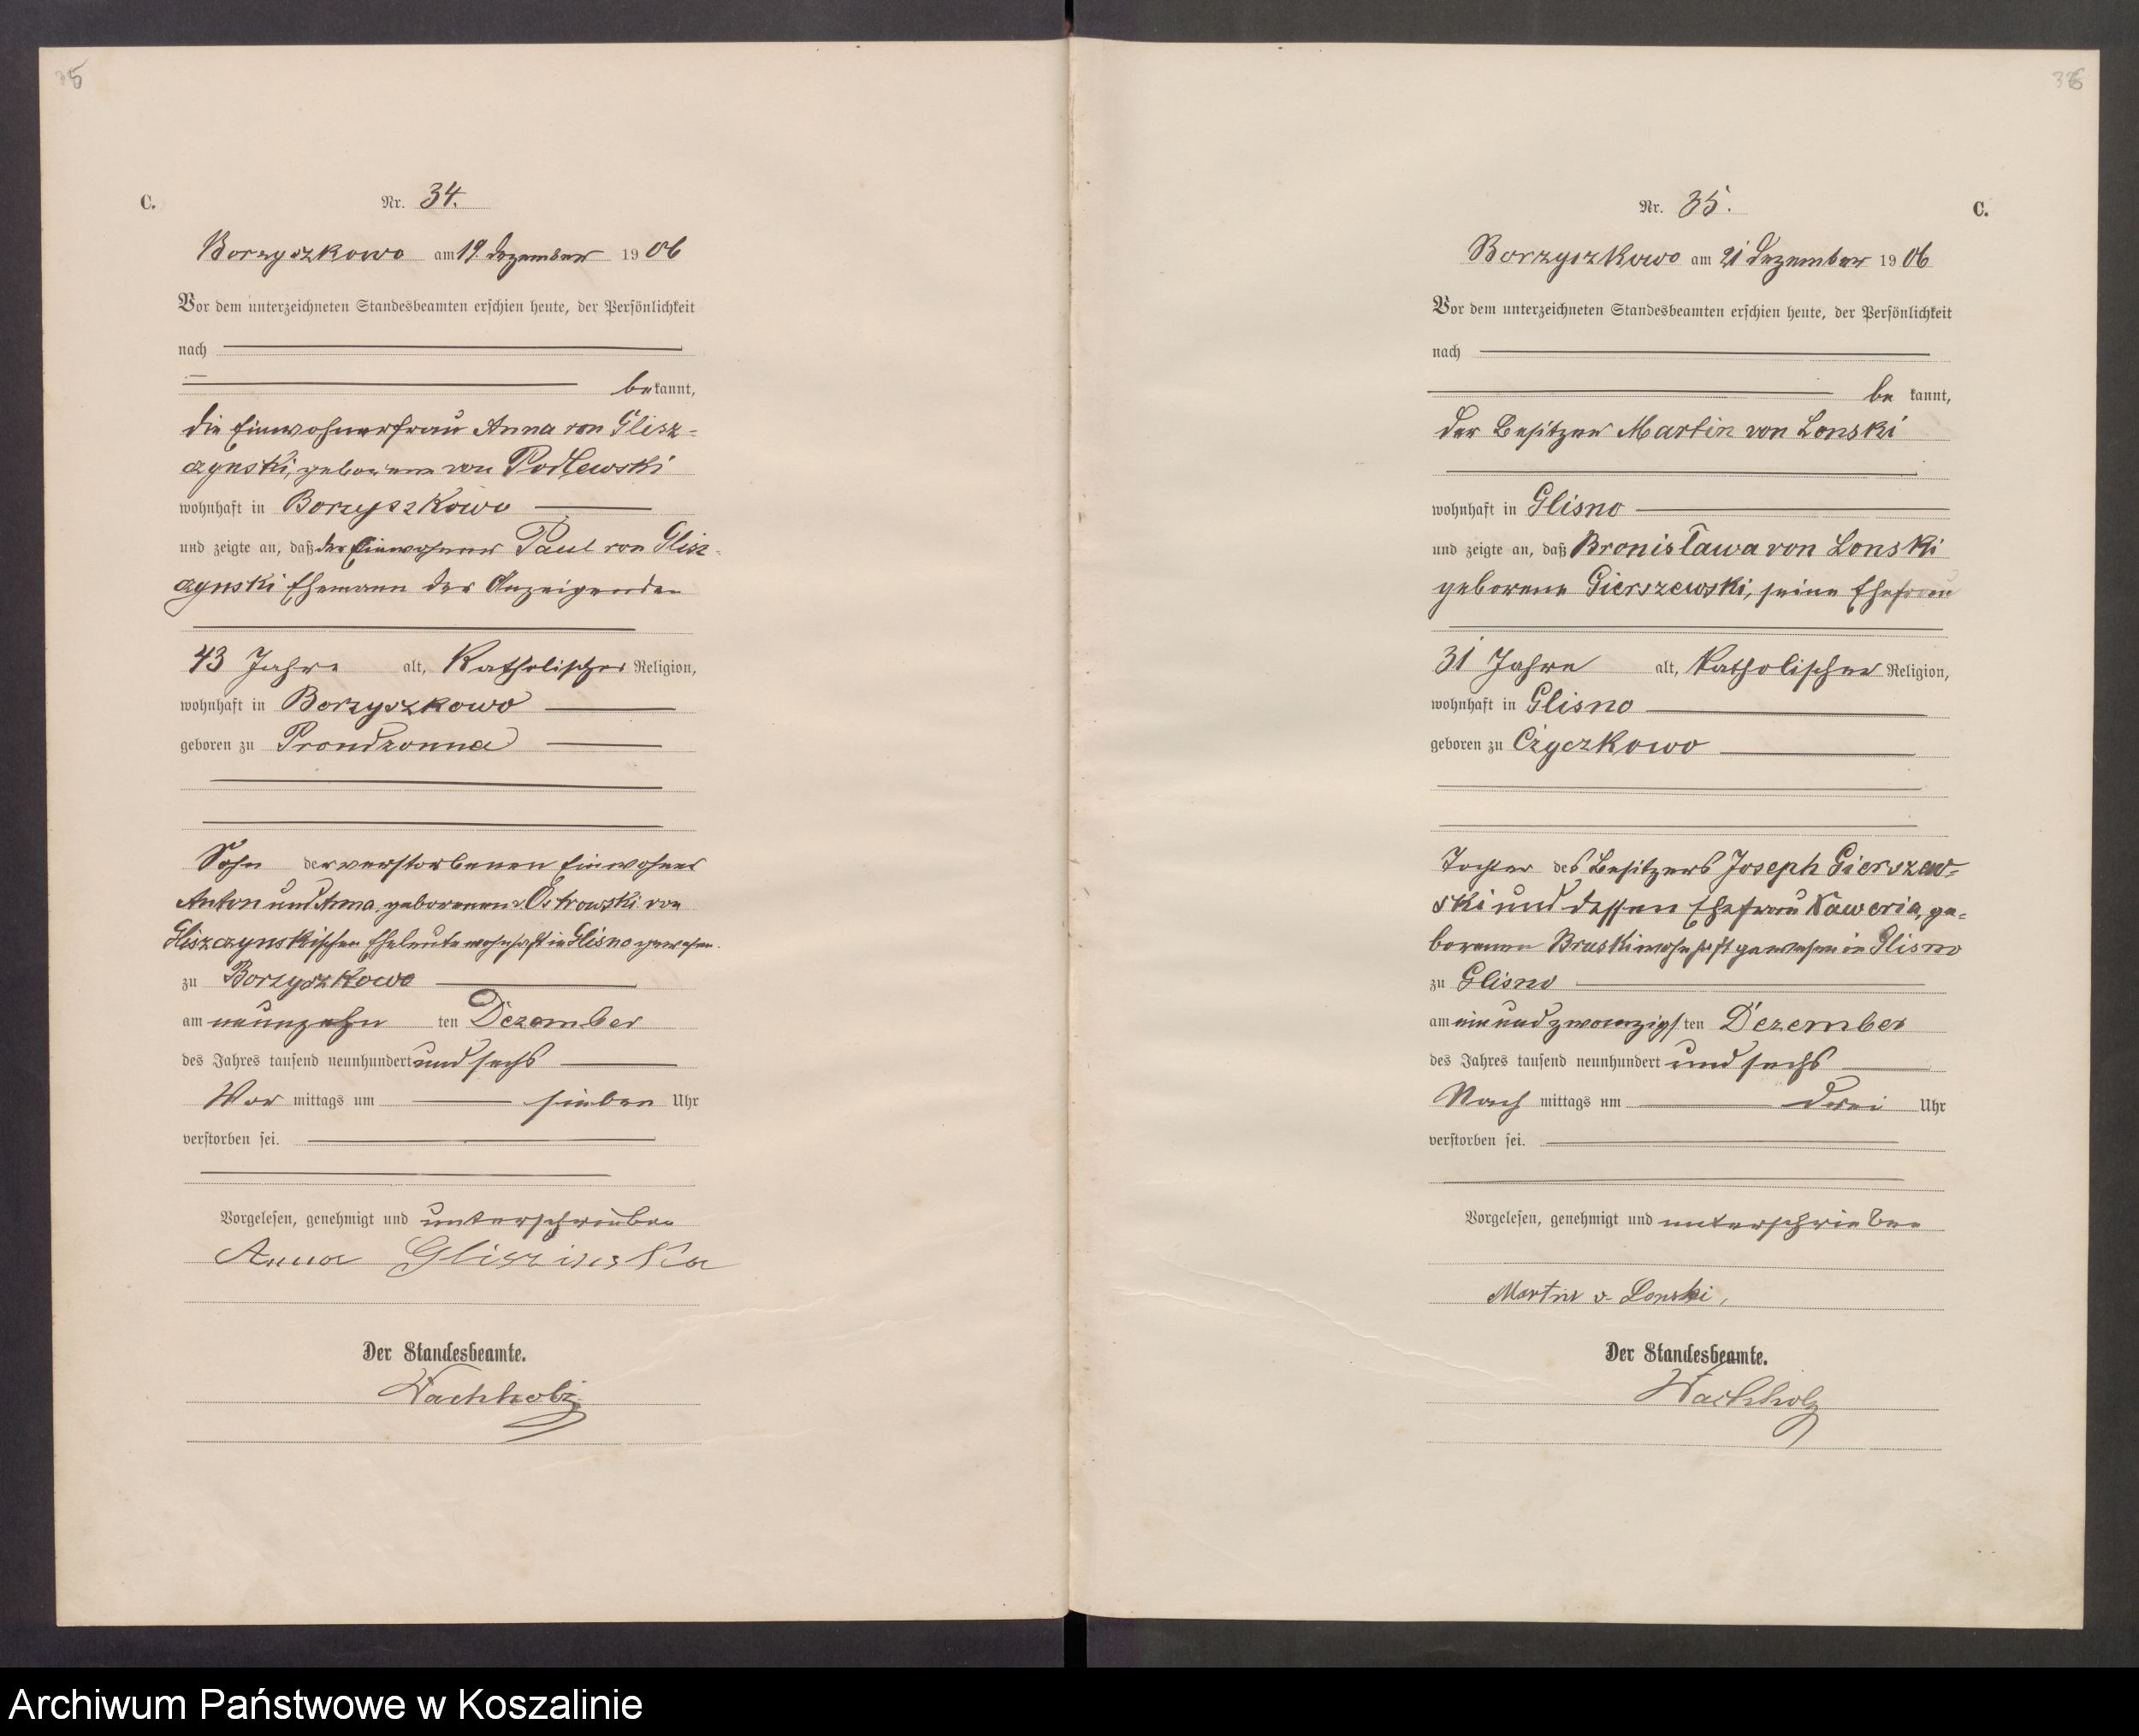 35
C.
Nr. 34.
Borzyszkowo am 19. Dezember 1906
Vor dem unterzeichneten Standesbeamten erschien heute, der Persönlichkeit
nach
bekannt,
die Einwohnerfrau Anna von Glisz-
czynski, geborene von Podlewski
wohnhaft in Borzyszkowo
und zeigte an, daß der Einwohner Paul von Glisz-
czynski Ehemann der Anzeigenden
43 Jahre alt, Katholischer Religion,
wohnhaft in Borzyszkowo
geboren zu Prondzonna
Sohn der verstorbenen Einwohner
Anton und Anna, geborenen v. Ostrowski von
Gliszczynskischen Eheleute wohnhaft in Glisno gewesen.
zu Borzyszkowo
am neunzehn ten Dezember
des Jahres tausend neunhundert und sechs
Vor mittags um sieben Uhr
verstorben sei.
Vorgelesen, genehmigt und unterschrieben
Anna Gliszinska
Der Standesbeamte.
Wachholz
36
Nr. 35. C.
Borzyszkowo am 21 Dezember 1906
Vor dem unterzeichneten Standesbeamten erschien heute, der Persönlichkeit
nach
be kannt,
der Besitzer Martin von Lonski
wohnhaft in Glisno
und zeigte an, daß Bronisława von Lonski
geborene Gierszewski, seine Ehefrau
31 Jahre alt, Katholischer Religion,
wohnhaft in Glisno
geboren zu Czyczkowo
Tochter des Besitzers Joseph Gierszew-
ski und dessen Ehefrau Xaweria, ge-
borenen Bruski wohnhaft gewesen in Glisno
zu Glisno
am ein und zwanzigs ten Dezember
des Jahres tausend neunhundert und sechs
Nach mittags um drei Uhr
verstorben sei.
Vorgelesen, genehmigt und unterschrieben
Martin v. Lonski,
Der Standesbeamte.
Wachholz
Archiwum Państwowe w Koszalinie